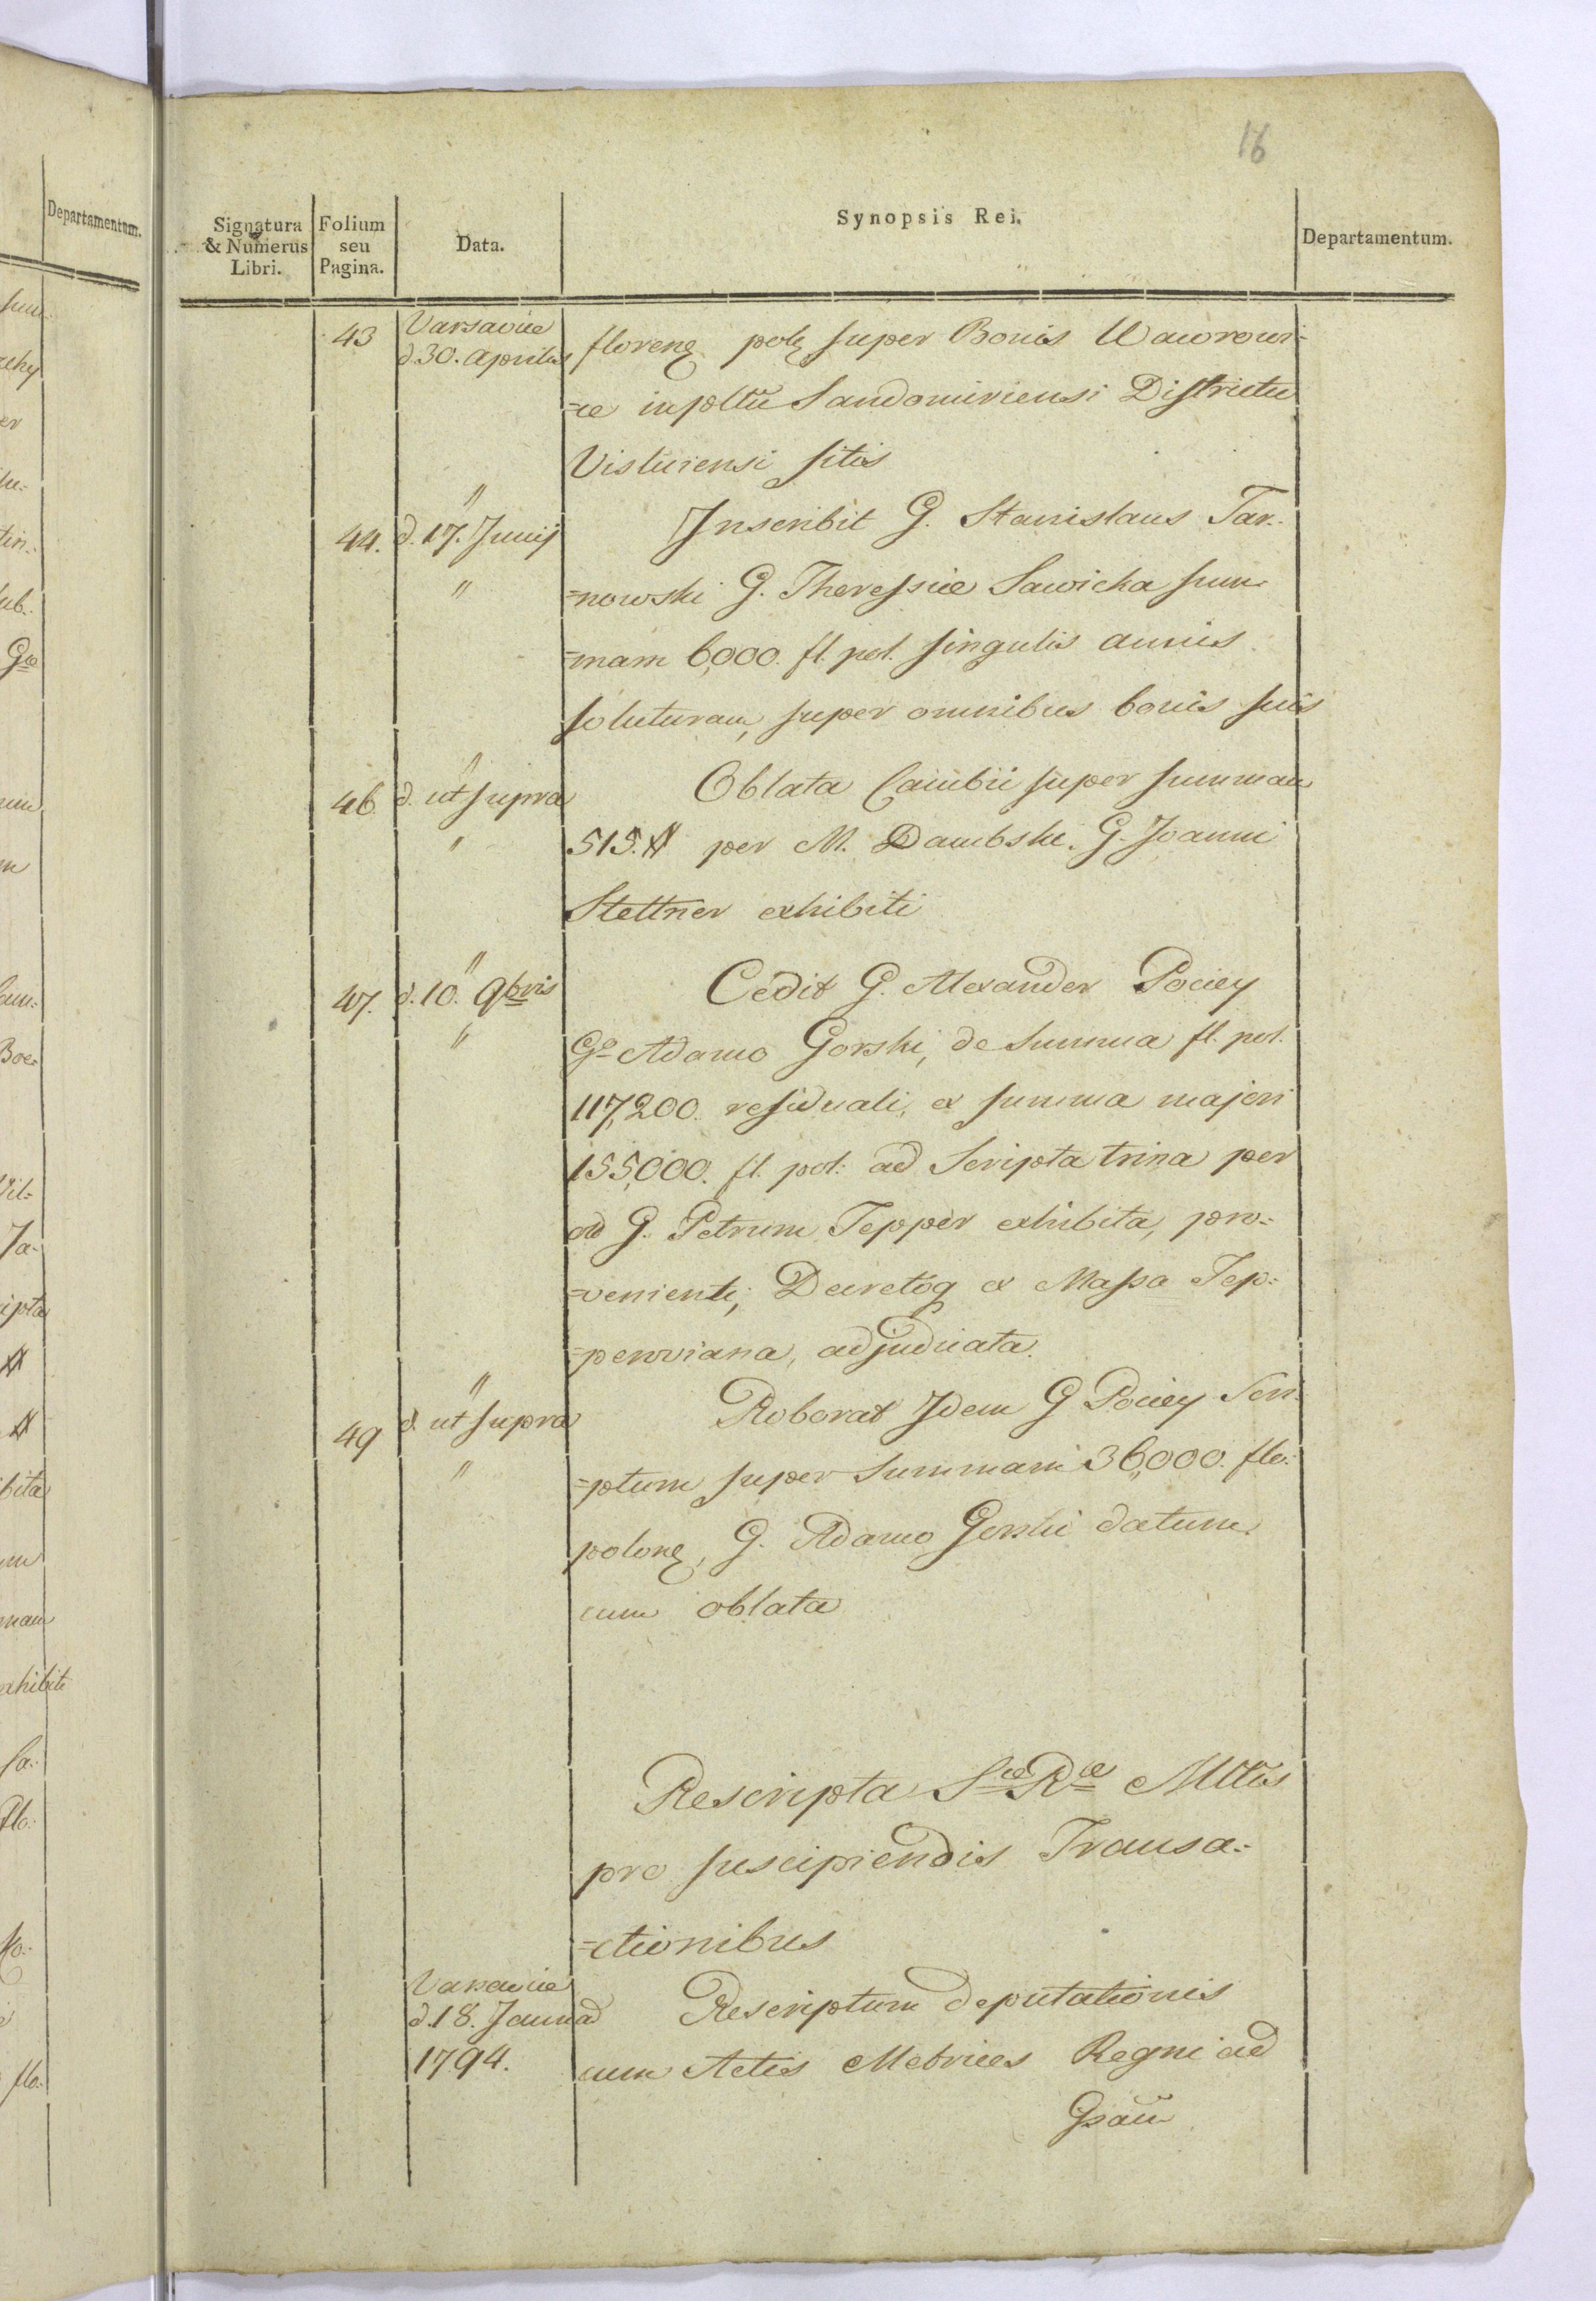 16
Signatura & Numerus Libri. | Folium seu Pagina. | Data. | Synopsis Rei. | Departamentum.
43 | Varsaviæ d. 30. Aprilis | florenꝫ polꝫ super Bonis Waworowi=
=ce in pltũ Sandomiriensi Districtu
Visliciensi sitis
44. | " d. 17. Junij " | Inscribit G. Stanislaus Tar=
=nowski G. Theressiæ Sawicka sum
=mam 6,000. fl. pol. singulis annis
soluturam, super omnibus bonis suis
46 | " d. ut supra " | Oblata Cambii super summam
515. # per M. Dambski. G. Joanni
Stettner exhibiti
47. | " d. 10. 9bris " | Cedit G. Alexander Pociey
Go Adamo Gorski, de Summa fl. pol.
117,200. residuali, ex summa majori
155,000. fl. pol: ad Scripta trina per
od G. Petrum Tepper exhibita, pro=
=venienti, Decretoq ex Massa Tep=
=peroviana, adjudicata.
49 | " d. ut supra " | Roborat Idem G Pociey Scri
=ptum super Summam 36,000. flo:
polonꝫ, G. Adamo Gorski datum
cum oblata
Rescripta Sæ Ræ Mttis
pro suscipiendis Transa=
=ctionibus
Varsaviæ d. 18. Januad 1794. | Rescriptum deputationis
cum Actis Metrices Regni ad